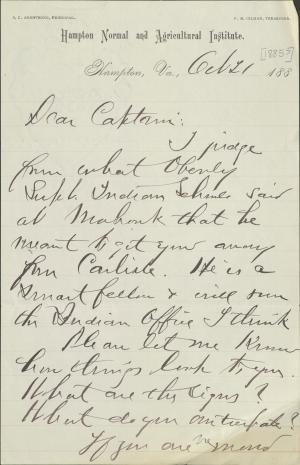 S. C. ARMSTRONG, PRINCIPAL.
F. N. GILMAN, TREASURER.
Hampton Normal and Agricultural Institute.
Hampton, Va., Oct 21 188
[1885?]
Dear Captain:
I judge
from what Oberly
Supt. Indian Schools said
at Mohonk that he
meant to get you away
from Carlisle. He is a
smart fellow & will run
the Indian Office I think
Please let me know
how things look to you.
What are the signs?
What do you anticipate?
If you are removed